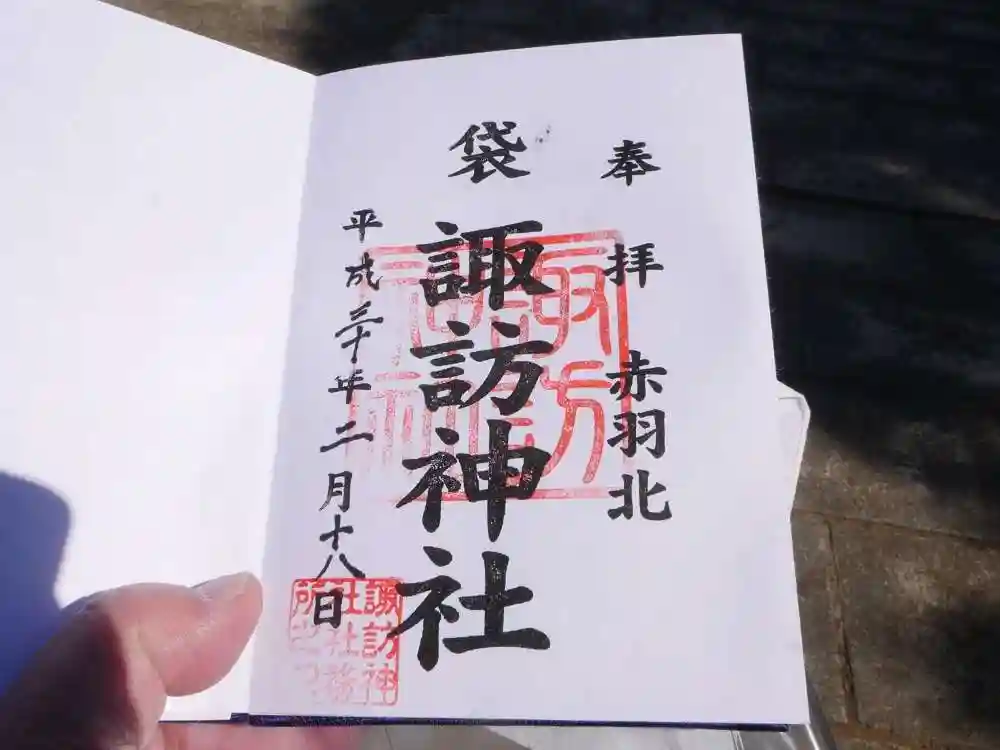 奉拝 赤羽北
袋
諏訪神社
平成三十年二月十八日
諏訪
神社
諏訪神
社社務
所之印